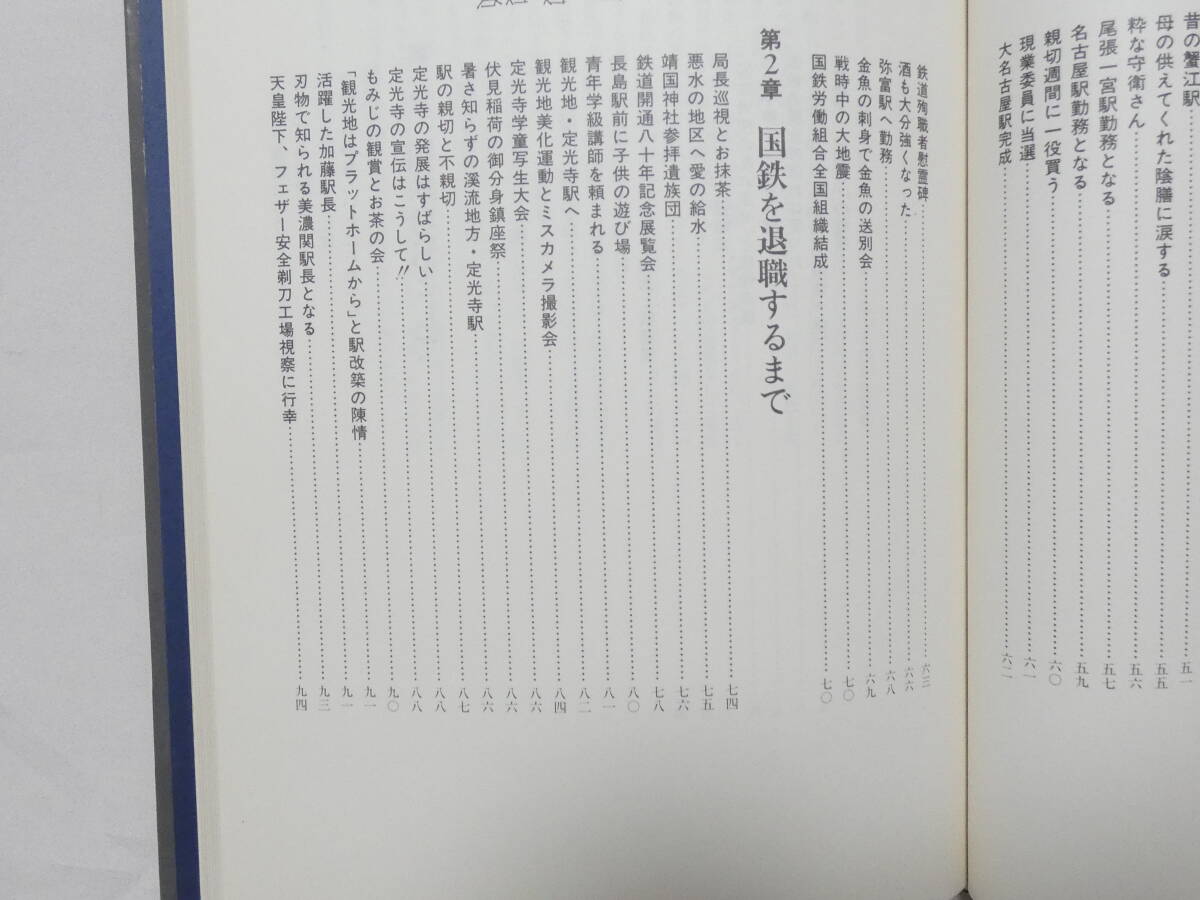 昔の蟹江駅……五一
母の供えてくれた陰膳に涙する……五五
粋な守衛さん……五六
尾張一宮駅勤務となる……五七
名古屋駅勤務となる……五九
親切週間に一役買う……六〇
現業委員に当選……六一
大名古屋駅完成……六二
鉄道殉職者慰霊碑……六三
酒も大分強くなった……六六
弥富駅へ勤務……六八
金魚の刺身で金魚の送別会……六九
戦時中の大地震……七〇
国鉄労働組合全国組織結成……七〇
第2章 国鉄を退職するまで
局長巡視とお抹茶……七四
悪水の地区へ愛の給水……七五
靖国神社参拝遺族団……七六
鉄道開通八十年記念展覧会……七八
長島駅前に子供の遊び場……八〇
青年学級講師を頼まれる……八一
観光地・定光寺駅へ……八二
観光地美化運動とミスカメラ撮影会……八四
定光寺学童写生大会……八六
伏見稲荷の御分身鎮座祭……八六
暑さ知らずの渓流地方・定光寺駅……八六
駅の親切と不親切……八七
定光寺の発展はすばらしい……八八
定光寺の宣伝はこうして!!……八八
もみじの観賞とお茶の会……九〇
「観光地はプラットホームから」と駅改築の陳情……九一
活躍した加藤駅長……九一
刃物で知られる美濃関駅長となる……九三
天皇陛下、フェザー安全剃刀工場視察に行幸……九四